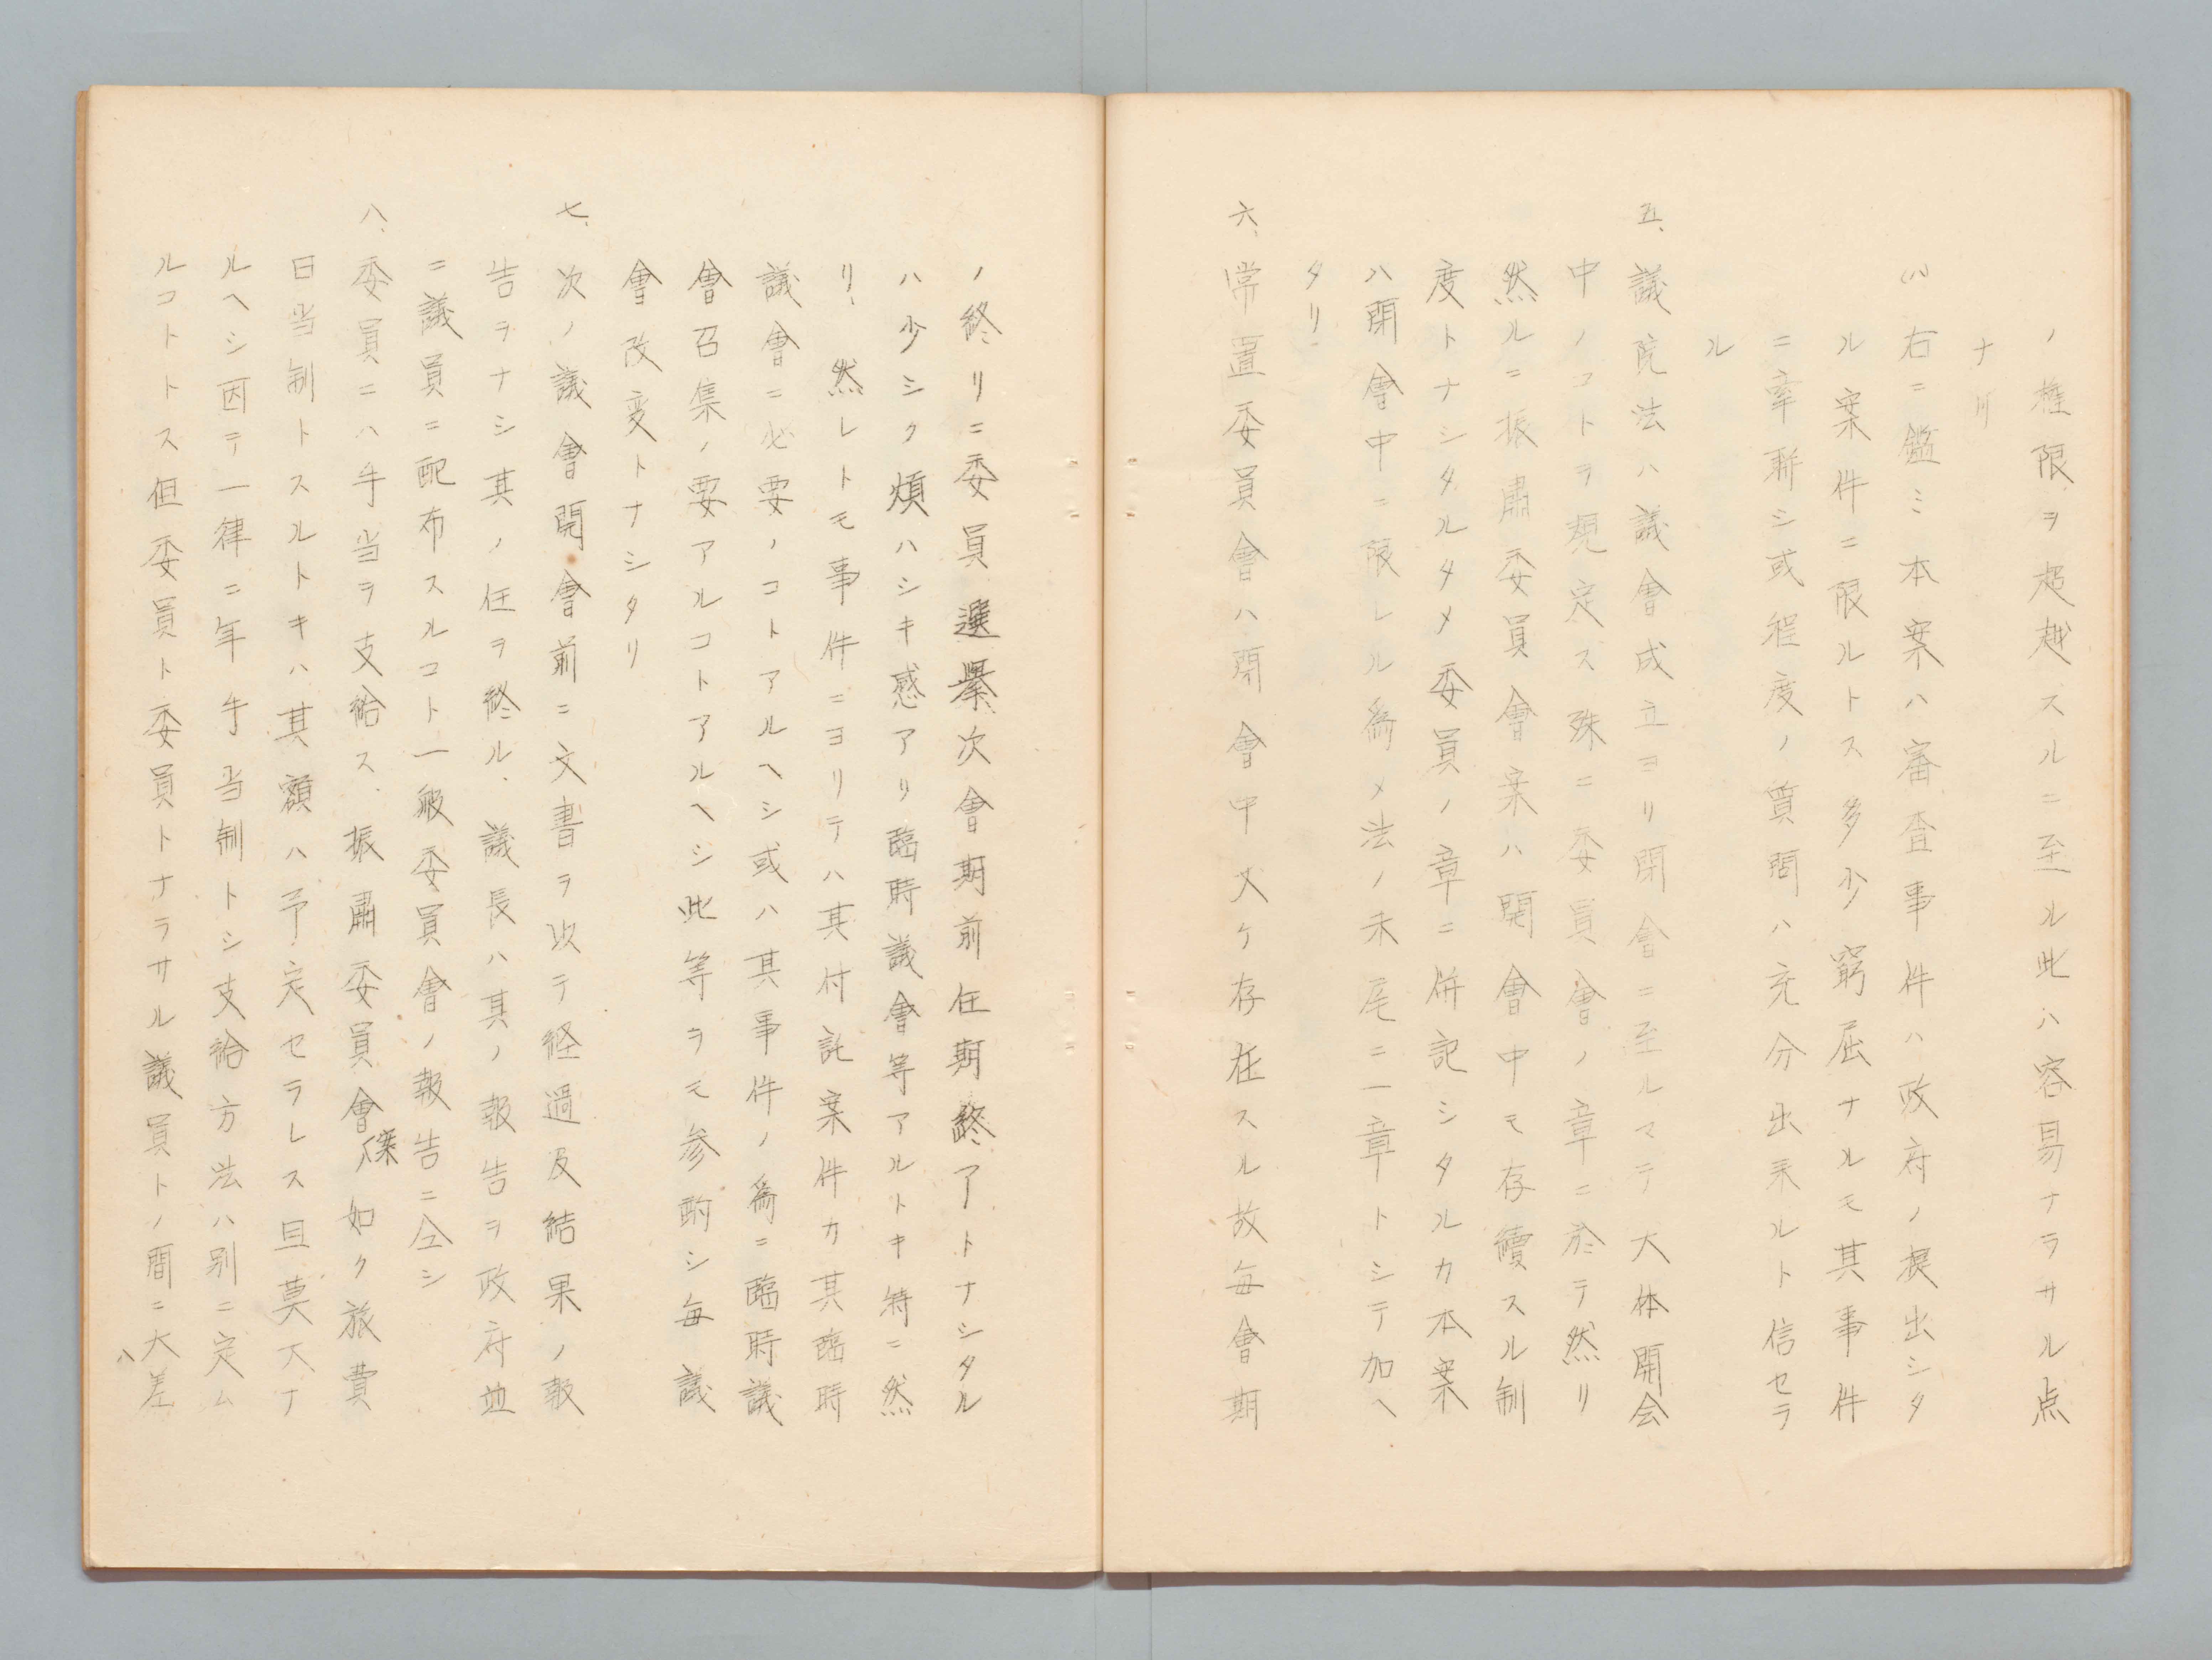 ノ権限ヲ超越スルニ至ル此ハ容易ナラサル点
ナリ
(ハ)右ニ鑑ミ本案ハ審査事件ハ政府ノ提出シタ
ル案件ニ限ルトス多少窮屈ナルモ其事件
ニ牽聯シ或程度ノ質問ハ充分出来ルト信セラ
ル
五、議院法ハ議會成立ヨリ閉會ニ至ルマテ大体開会
中ノコトヲ規定ス殊ニ委員會ノ章ニ於テ然リ
然ルニ振肅委員會案ハ閉會中モ存續スル制
度トナシタルタメ委員ノ章ニ併記シタルカ本案
ハ閉會中ニ限レル為メ法ノ末尾ニ一章トシテ加ヘ
タリ
六、常置委員會ハ閉會中丈ケ存在スル故毎會期
ノ終リニ委員選擧次會期前任期終了トナシタル
ハ少シク煩ハシキ感アリ臨時議會等アルトキ特ニ然
リ、然レトモ事件ニヨリテハ其付託案件カ其臨時
議會ニ必要ノコトアルヘシ或ハ其事件ノ為ニ臨時議
會召集ノ要アルコトアルヘシ此等ヲモ参酌シ毎議
會改変トナシタリ
七、次ノ議會開會前ニ文書ヲ以テ経過及結果ノ報
告ヲナシ其ノ任ヲ終ル、議長ハ其ノ報告ヲ政府並
ニ議員ニ配布スルコト一般委員會ノ報告ニ仝シ
八、委員ニハ手当ヲ支給ス、振肅委員會案ノ如ク旅費
日当制トスルトキハ其額ハ予定セラレス且莫大ナ
ルヘシ因テ一律ニ年手当制トシ支給方法ハ別ニ定ム
ルコトトス但委員ト委員トナラサル議員トノ間ニ大差
ハ